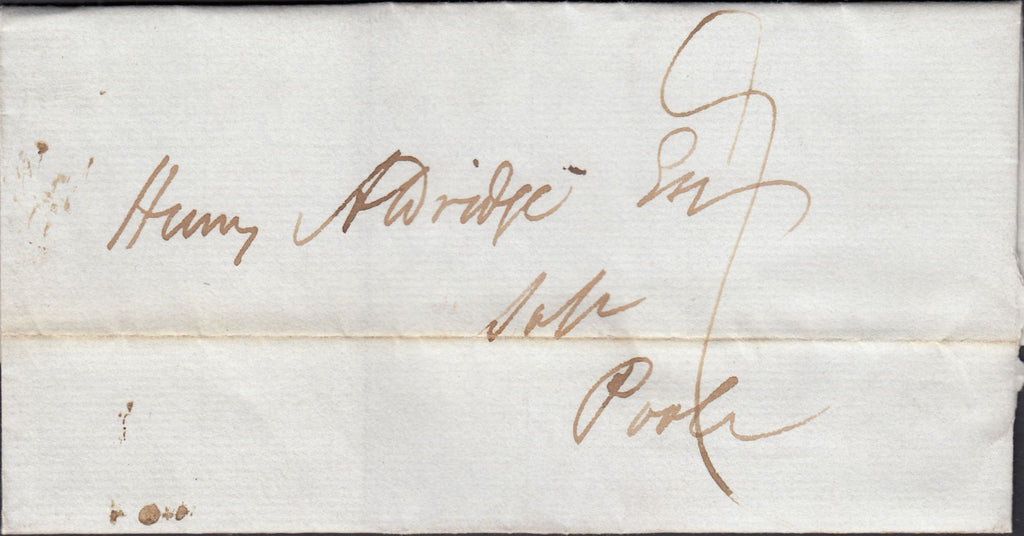 Henry Aldridge Esq
Solr
Poole